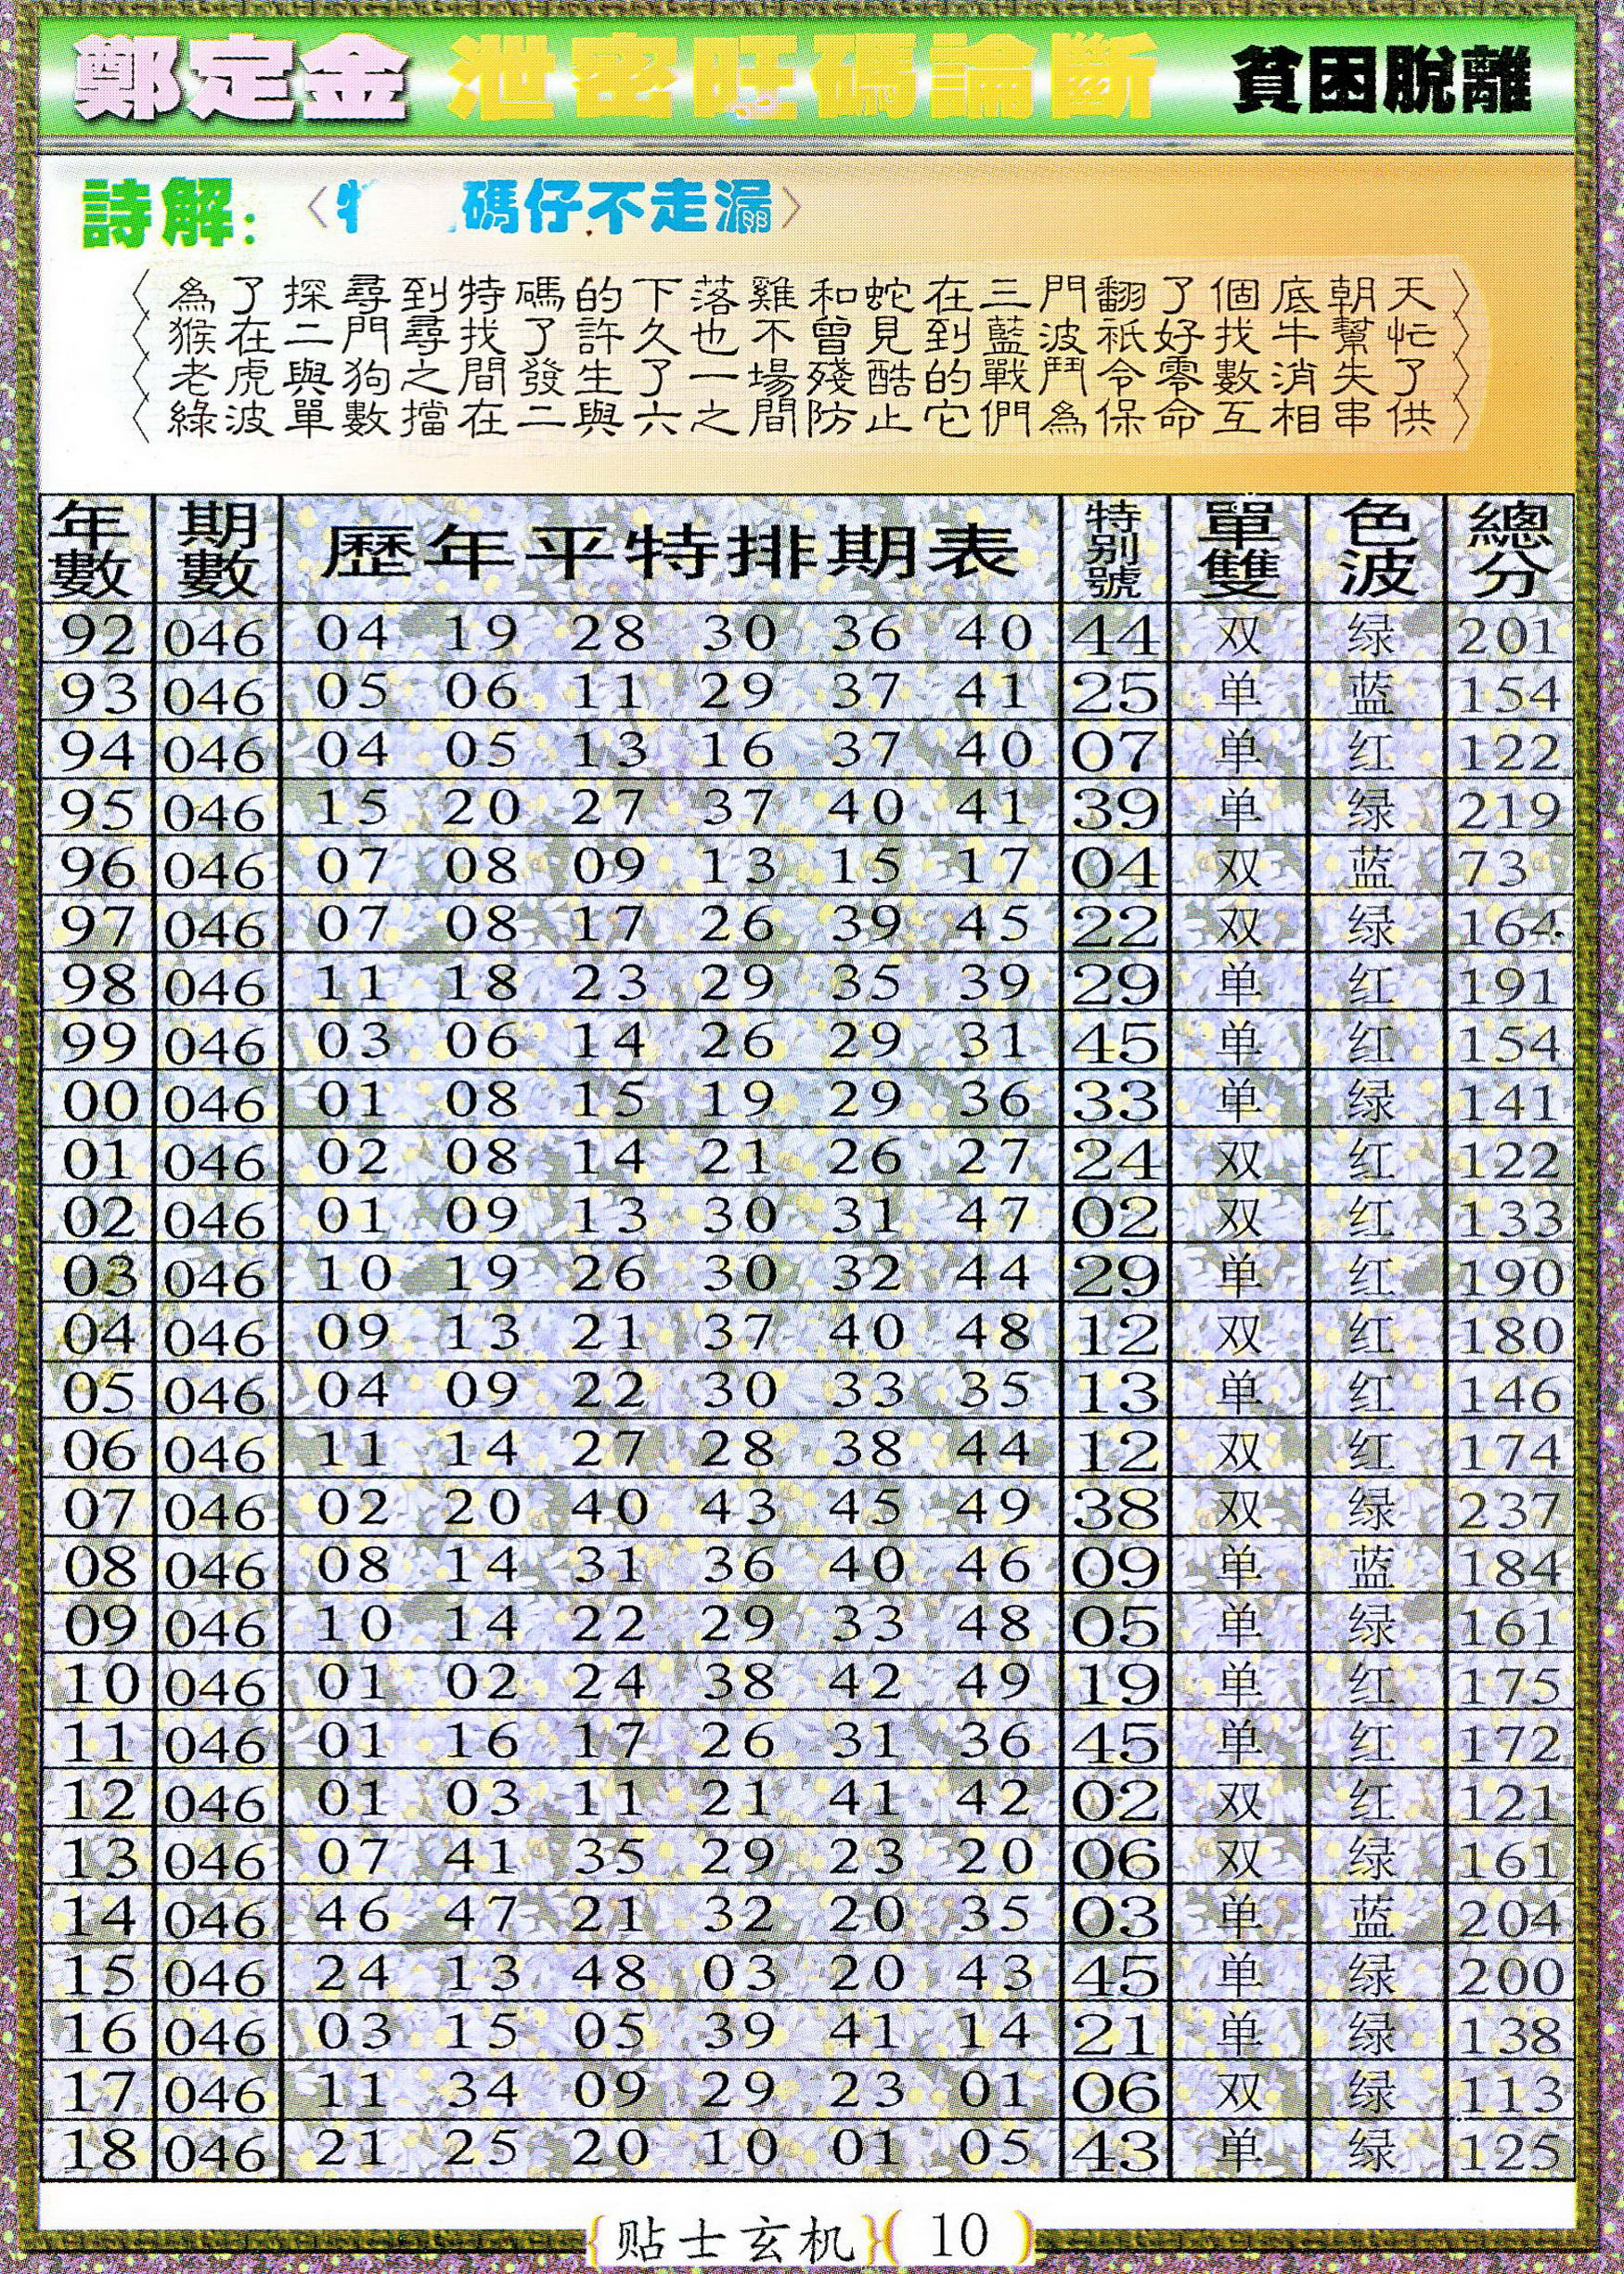 鄭定金 泄密旺碼論斷 貧困脫離
詩解: 〈特 碼仔不走漏〉
〈為了探尋到特碼的下落雞和蛇在三門翻了個底朝天〉
〈猴在二門尋找了許久也不曾見到藍波祇好找牛幫忙〉
〈老虎與狗之間發生了一場殘酷的戰鬥令零數消失了〉
〈綠波單數擋在二與六之間防止它們為保命互相串供〉
年數 期數 歷年平特排期表 特別號 單雙 色波 總分
92 046 04 19 28 30 36 40 44 双 绿 201
93 046 05 06 11 29 37 41 25 单 蓝 154
94 046 04 05 13 16 37 40 07 单 红 122
95 046 15 20 27 37 40 41 39 单 绿 219
96 046 07 08 09 13 15 17 04 双 蓝 73
97 046 07 08 17 26 39 45 22 双 绿 164
98 046 11 18 23 29 35 39 29 单 红 191
99 046 03 06 14 26 29 31 45 单 红 154
00 046 01 08 15 19 29 36 33 单 绿 141
01 046 02 08 14 21 26 27 24 双 红 122
02 046 01 09 13 30 31 47 02 双 红 133
03 046 10 19 26 30 32 44 29 单 红 190
04 046 09 13 21 37 40 48 12 双 红 180
05 046 04 09 22 30 33 35 13 单 红 146
06 046 11 14 27 28 38 44 12 双 红 174
07 046 02 20 40 43 45 49 38 双 绿 237
08 046 08 14 31 36 40 46 09 单 蓝 184
09 046 10 14 22 29 33 48 05 单 绿 161
10 046 01 02 24 38 42 49 19 单 红 175
11 046 01 16 17 26 31 36 45 单 红 172
12 046 01 03 11 21 41 42 02 双 红 121
13 046 07 41 35 29 23 20 06 双 绿 161
14 046 46 47 21 32 20 35 03 单 蓝 204
15 046 24 13 48 03 20 43 45 单 绿 200
16 046 03 15 05 39 41 14 21 单 绿 138
17 046 11 34 09 29 23 01 06 双 绿 113
18 046 21 25 20 10 01 05 43 单 绿 125
{贴士玄机}(10)